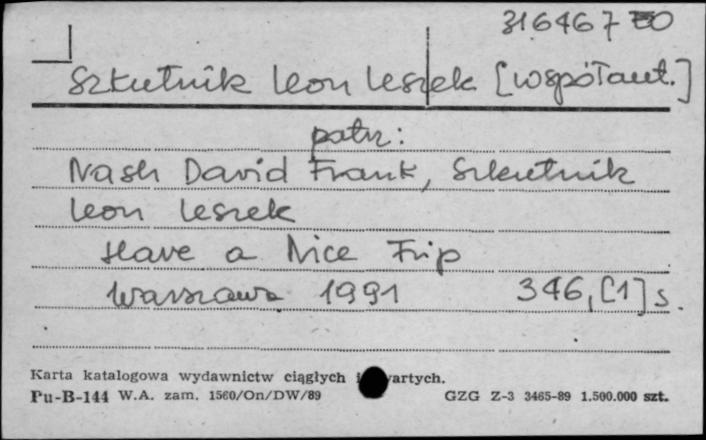 316467 EO
Szkutnik Leon Leszek [współaut.]
patrz:
Nash David Frank, Szkutnik
Leon Leszek
Have a Nice Trip
Warszawa 1991 346, [1] s.
Karta katalogowa wydawnictw ciągłych i zwartych.
Pu-B-144 W.A. zam. 1560/On/DW/89 GZG Z-3 3465-89 1.500.000 szt.